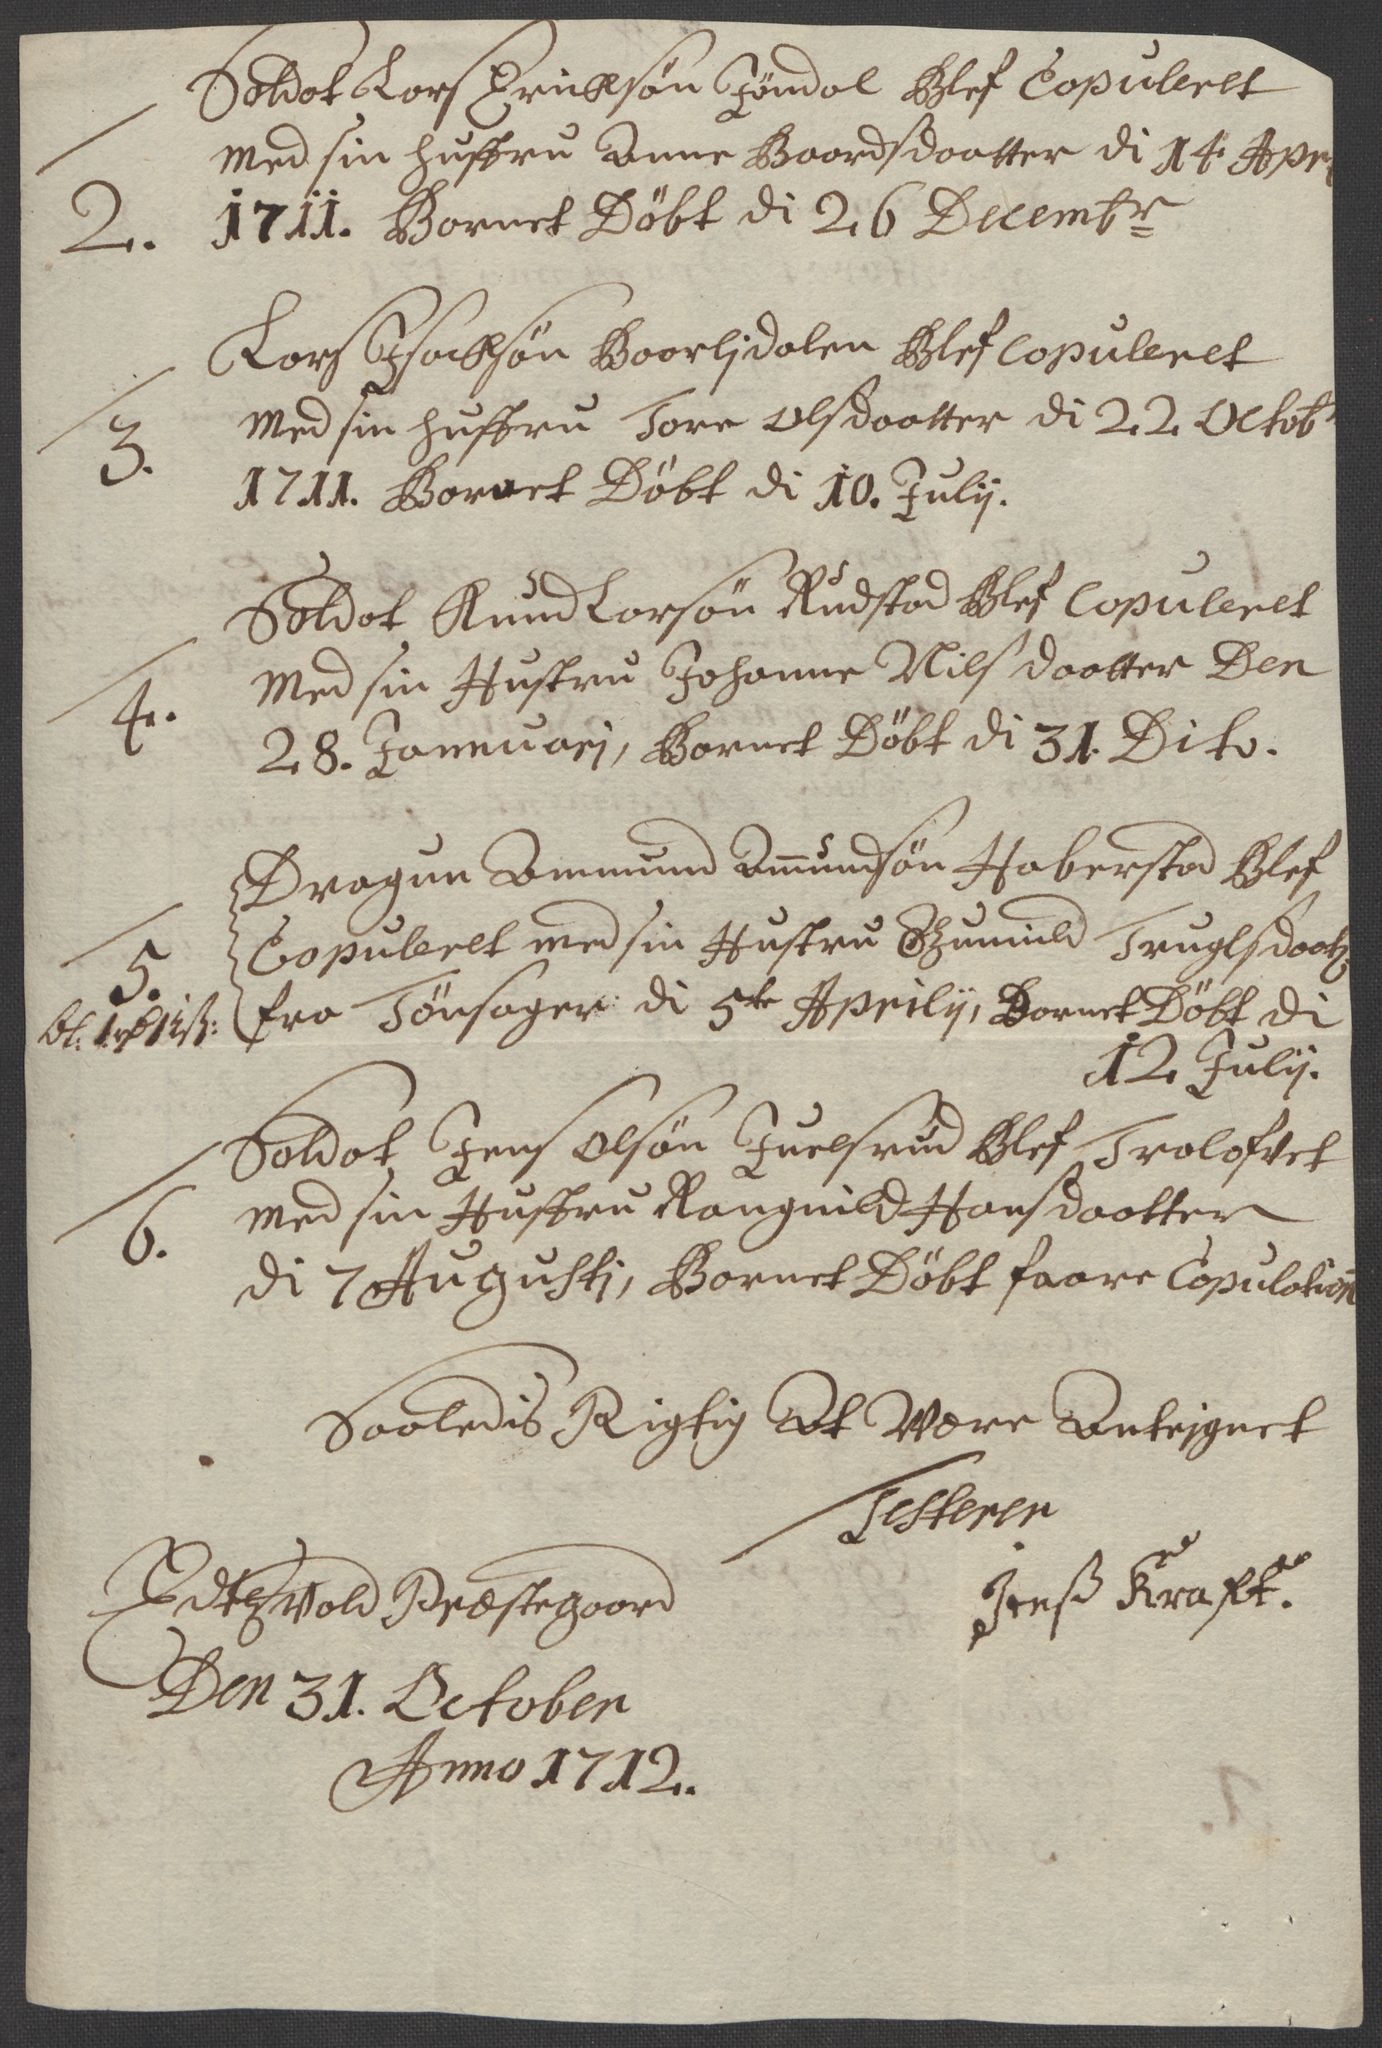 Soldat Lars Ericksøn Jøndal Blef Copuleret
2. med sin hustru Anne Baardsdaatter di 14 Apri
1711. Barnet Døbt di 26 Decembr
Lars Isachsøn Baarlidalen Blef Copuleret
3. med sin hustru Tore Olsdaatter di 22 Octobr
1711. Barnet Døbt di 10. Julij.
Soldat Knud Larsøn Rudstad Blef Copuleret
4. Med sin Hustru Johanne Nilsdaatter Den
28. Jannuarj, Barnet Døbt di 31. Dito.
Dragun Ammund Amundsøn Haberstad Blef
5. Copuleret med sin Hustru Gunnild Truglsdaatr
fra Tønsager di 5te Aprilij, Barnet Døbt di
12 Julij.
Soldat Jens Olsøn Juelsrud Blef Trolofvet
6. med sin Hustru Rangnild Hansdaatter
di 7 Augustj, Barnet Døbt faare Copulation
Saaledis Rigtig At Være Antejgnet
Testerer
Jenß Kraft.
Edtzvold Præstegaard
Den 31. October
Anno 1712.